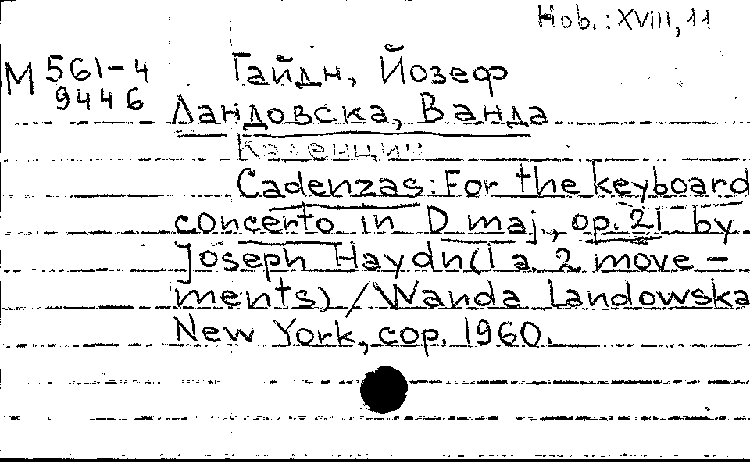 Hob.: XVIII, 11
М 561-4
9446
Гайдн, Йозеф
Ландовска, Ванда
Каденции
Cadenzas: For the keyboard
concerto in D maj., op. 21 by
Joseph Haydn (1 a 2 move-
ments) / Wanda Landowska
New York, cop. 1960.